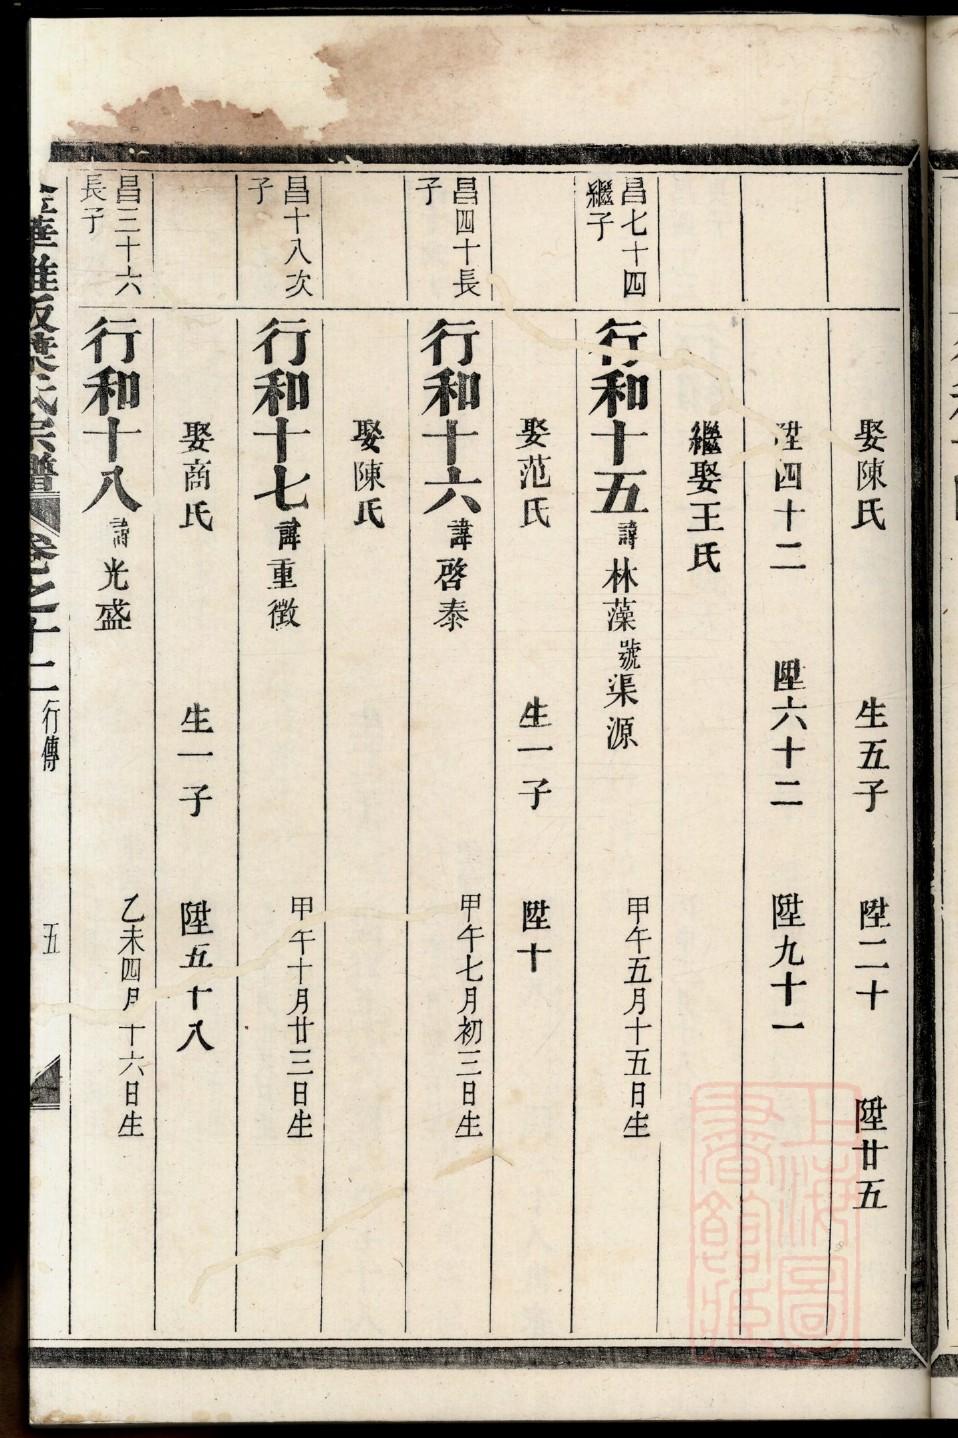 娶陳氏 生五子 陞二十 陞廿五
陞四十二 陞六十二 陞九十一
繼娶王氏
昌七十四繼子
行和十五 諱林藻 號渠源 甲午五月十五日生
娶范氏 生一子 陞十
昌四十長子
行和十六 諱啓泰 甲午七月初三日生
娶陳氏
昌十八次子
行和十七 諱重徵 甲午十月廿三日生
娶商氏 生一子 陞五十八
昌三十六長子
行和十八 諱光盛 乙未四月十六日生
葉氏宗譜 卷之十二 行傳 五
上海圖書館藏